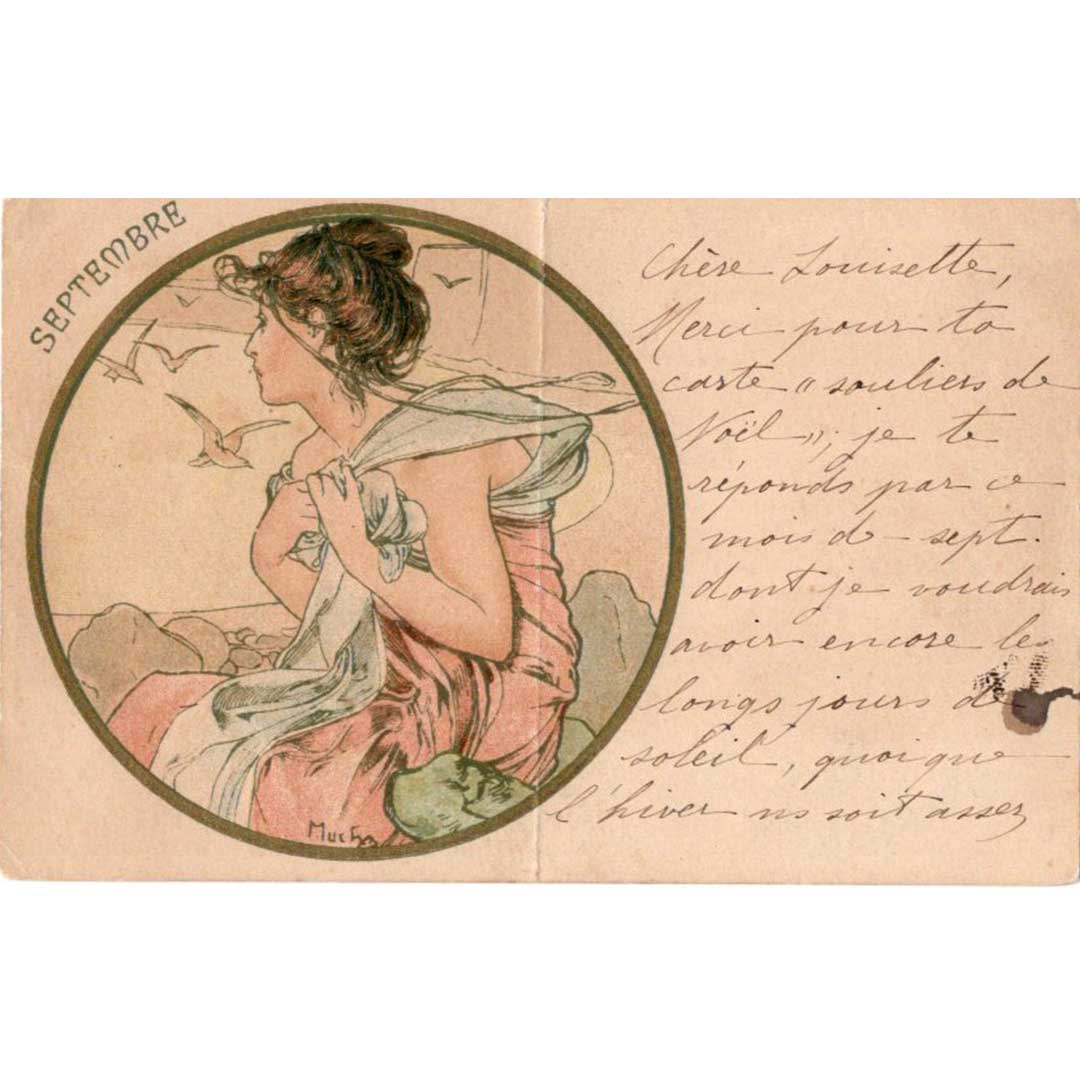 SEPTEMBRE
Chère Louisette,
Merci pour ta
carte « souliers de
Noël » ; je te
réponds par ce
mois de sept.
dont je voudrais
avoir encore les
longs jours de
soleil, quoique
l'hiver ns soit assez
Mucha